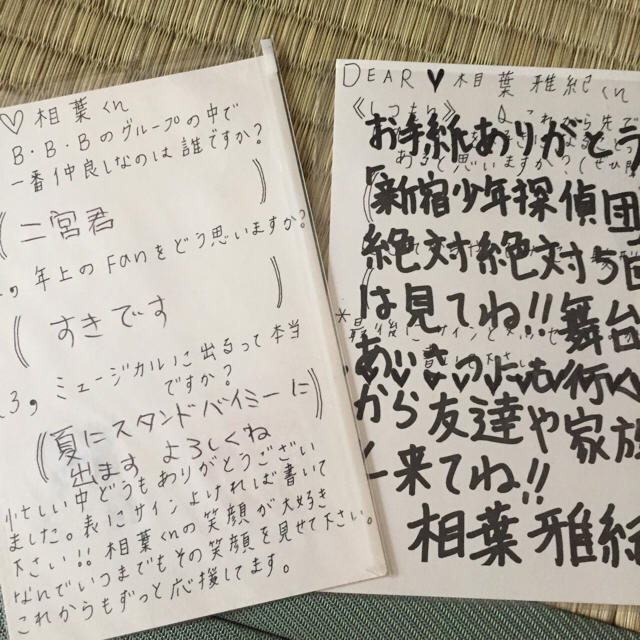 ♡相葉くん
B・B・Bのグループの中で
一番仲良しなのは誰ですか?
(二宮君)
2,年上のFanをどう思いますか?
(すきです)
3,ミュージカルに出るって本当
ですか?
(夏にスタンドバイミーに
出ます よろしくね)
忙しい中どうもありがとうござい
ました。表にサイン上ければ書いて
下さい!!相葉くんの笑顔が大好き
なんでいつまでもその笑顔を見せて下さい。
これからもずっと応援してます。
DEAR♥相葉雅紀くん
《しつもん》
お手紙ありがとう
「新宿少年探偵団
絶対絶対5回
は見てね!!舞台
あいさつにも行く
から友達や家族
と来てね!!
相葉雅紀